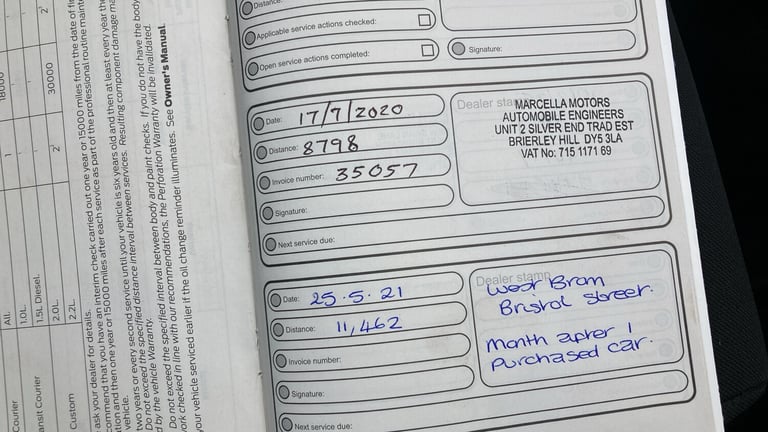 Distance:
Applicable service actions checked:
Open service actions completed:
Signature:
Date: 17/7/2020
Distance: 8798
Invoice number: 35057
Signature:
Next service due:
Dealer stamp
MARCELLA MOTORS
AUTOMOBILE ENGINEERS
UNIT 2 SILVER END TRAD EST
BRIERLEY HILL DY5 3LA
VAT No: 715 1171 69
Date: 25.5.21
Distance: 11,462
Invoice number:
Signature:
Next service due:
Dealer stamp
West Brom
Bristol Street.
Month after I
purchased car.
18000
1
2
30000
2
All.
1.0L.
1.5L Diesel.
2.0L.
2.2L.
Courier
ansit Courier
Custom
ask your dealer for details.
commend that you have an interim check carried out one year or 15000 miles from the date of
ation and then one year or 15000 miles after each service as part of the professional routine
two years or every second service until your vehicle is six years old and then at least every year
vehicle.
Do not exceed the specified distance interval between services. Resulting component damage
d by the vehicle Warranty.
Do not exceed the specified interval between body and paint checks. If you do not have the body
ork checked in line with our recommendations, the Perforation Warranty will be invalidated.
your vehicle serviced earlier if the oil change reminder illuminates. See Owner's Manual.